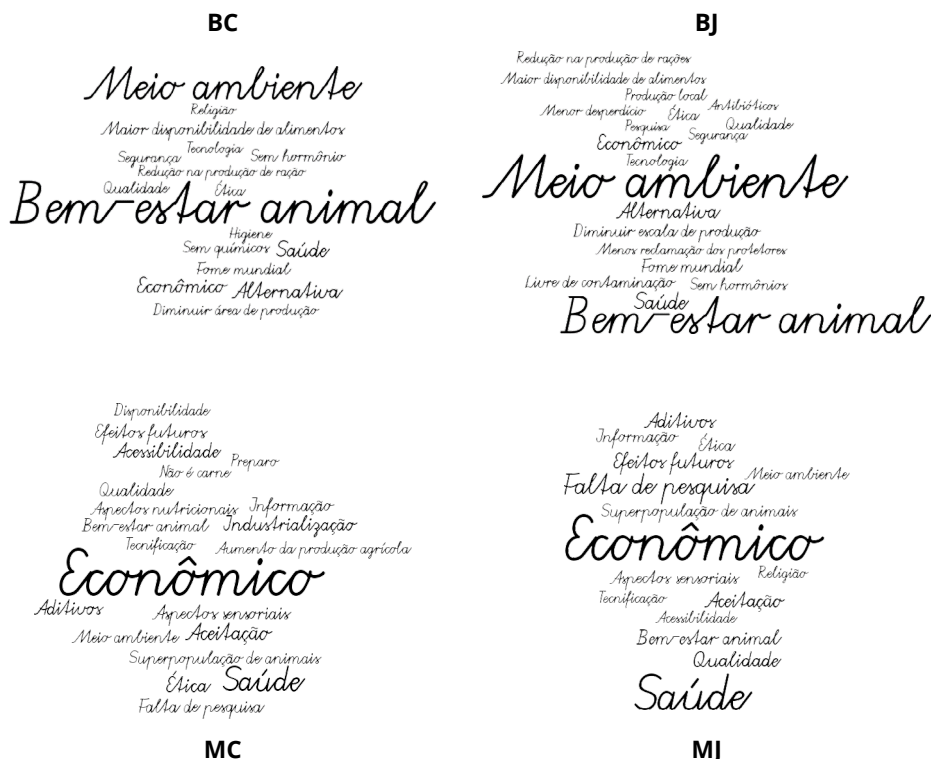 BC
Meio ambiente
Religião
Maior disponibilidade de alimentos
Tecnologia
Segurança Sem hormônio
Redução na produção de ração
Qualidade Ética
Bem-estar animal
Higiene
Sem químicos Saúde
Fome mundial
Econômico Alternativa
Diminuir área de produção
BJ
Redução na produção de rações
Maior disponibilidade de alimentos
Produção local
Menor desperdício Ética Antibióticos
Pesquisa Segurança Qualidade
Econômico
Tecnologia
Meio ambiente
Alternativa
Diminuir escala de produção
Menos reclamação dos protetores
Fome mundial
Livre de contaminação Sem hormônios
Saúde
Bem-estar animal
Disponibilidade
Efeitos futuros
Acessibilidade
Não é carne Preparo
Qualidade
Aspectos nutricionais Informação
Bem-estar animal Industrialização
Tecnificação Aumento da produção agrícola
Econômico
Aditivos Aspectos sensoriais
Meio ambiente Aceitação
Superpopulação de animais
Ética Saúde
Falta de pesquisa
MC
Aditivos
Informação Ética
Efeitos futuros
Falta de pesquisa Meio ambiente
Superpopulação de animais
Econômico
Aspectos sensoriais Religião
Tecnificação Aceitação
Acessibilidade
Bem-estar animal
Qualidade
Saúde
MJ